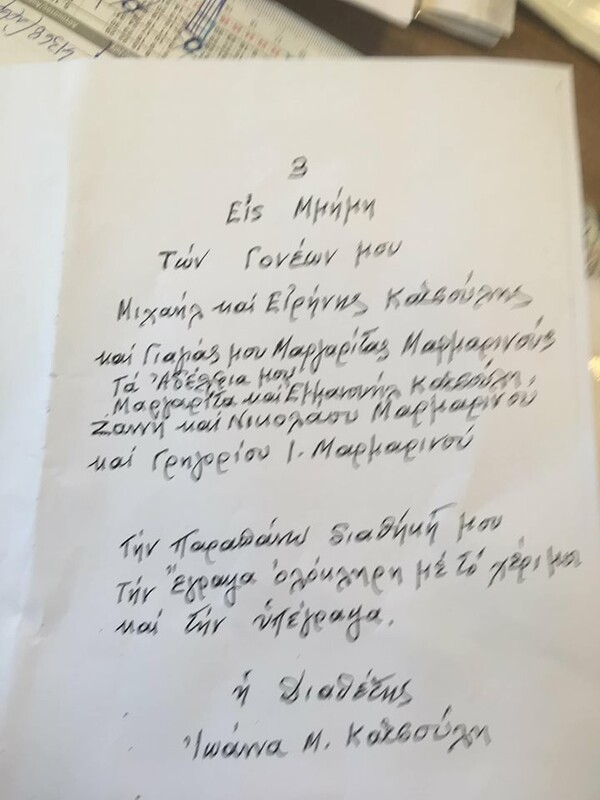 4368
3
Εἰς Μνήμη
Τών Γονέων μου
Μιχαήλ καί Εἰρήνης Κατσούλης
καί Γιαγιάς μου Μαργαρίτας Μαρμαρινούς
Τά Ἀδέλφια μου
Μαργαρίτα καί Εμμανουήλ Κατσούλη,
Ζαννή καί Νικολάου Μαρμαρινού
καί Γρηγορίου Ι. Μαρμαρινού
Τήν παραπάνω διαθήκή μου
Τήν Ἔγραψα ὁλόκληρη μέ τό χέρι μου
καί τήν ὑπέγραψα.
ἡ Διαθέτης
Ἰωάννα Μ. Κατσούλη